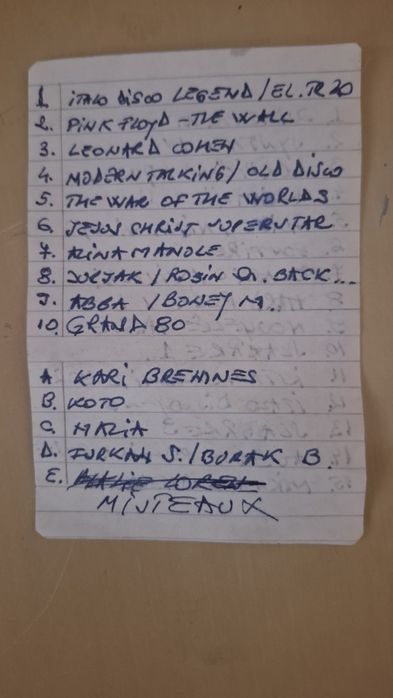 1. ITALO DISCO LEGEND / EL. TR 20
2. PINK FLOYD - THE WALL
3. LEONARD COHEN
4. MODERN TALKING / OLD DISCO
5. THE WAR OF THE WORLDS
6. JESUS CHRIST SUPERSTAR
7. ALINA MANOLE
8. / ROBIN BACK...
9. ABBA / BONEY M.
10. GRAND 80
A KARI BREMNES
B. KOTO
C. MARIA
D. S. / BURAK B.
E.
MISTEAUX